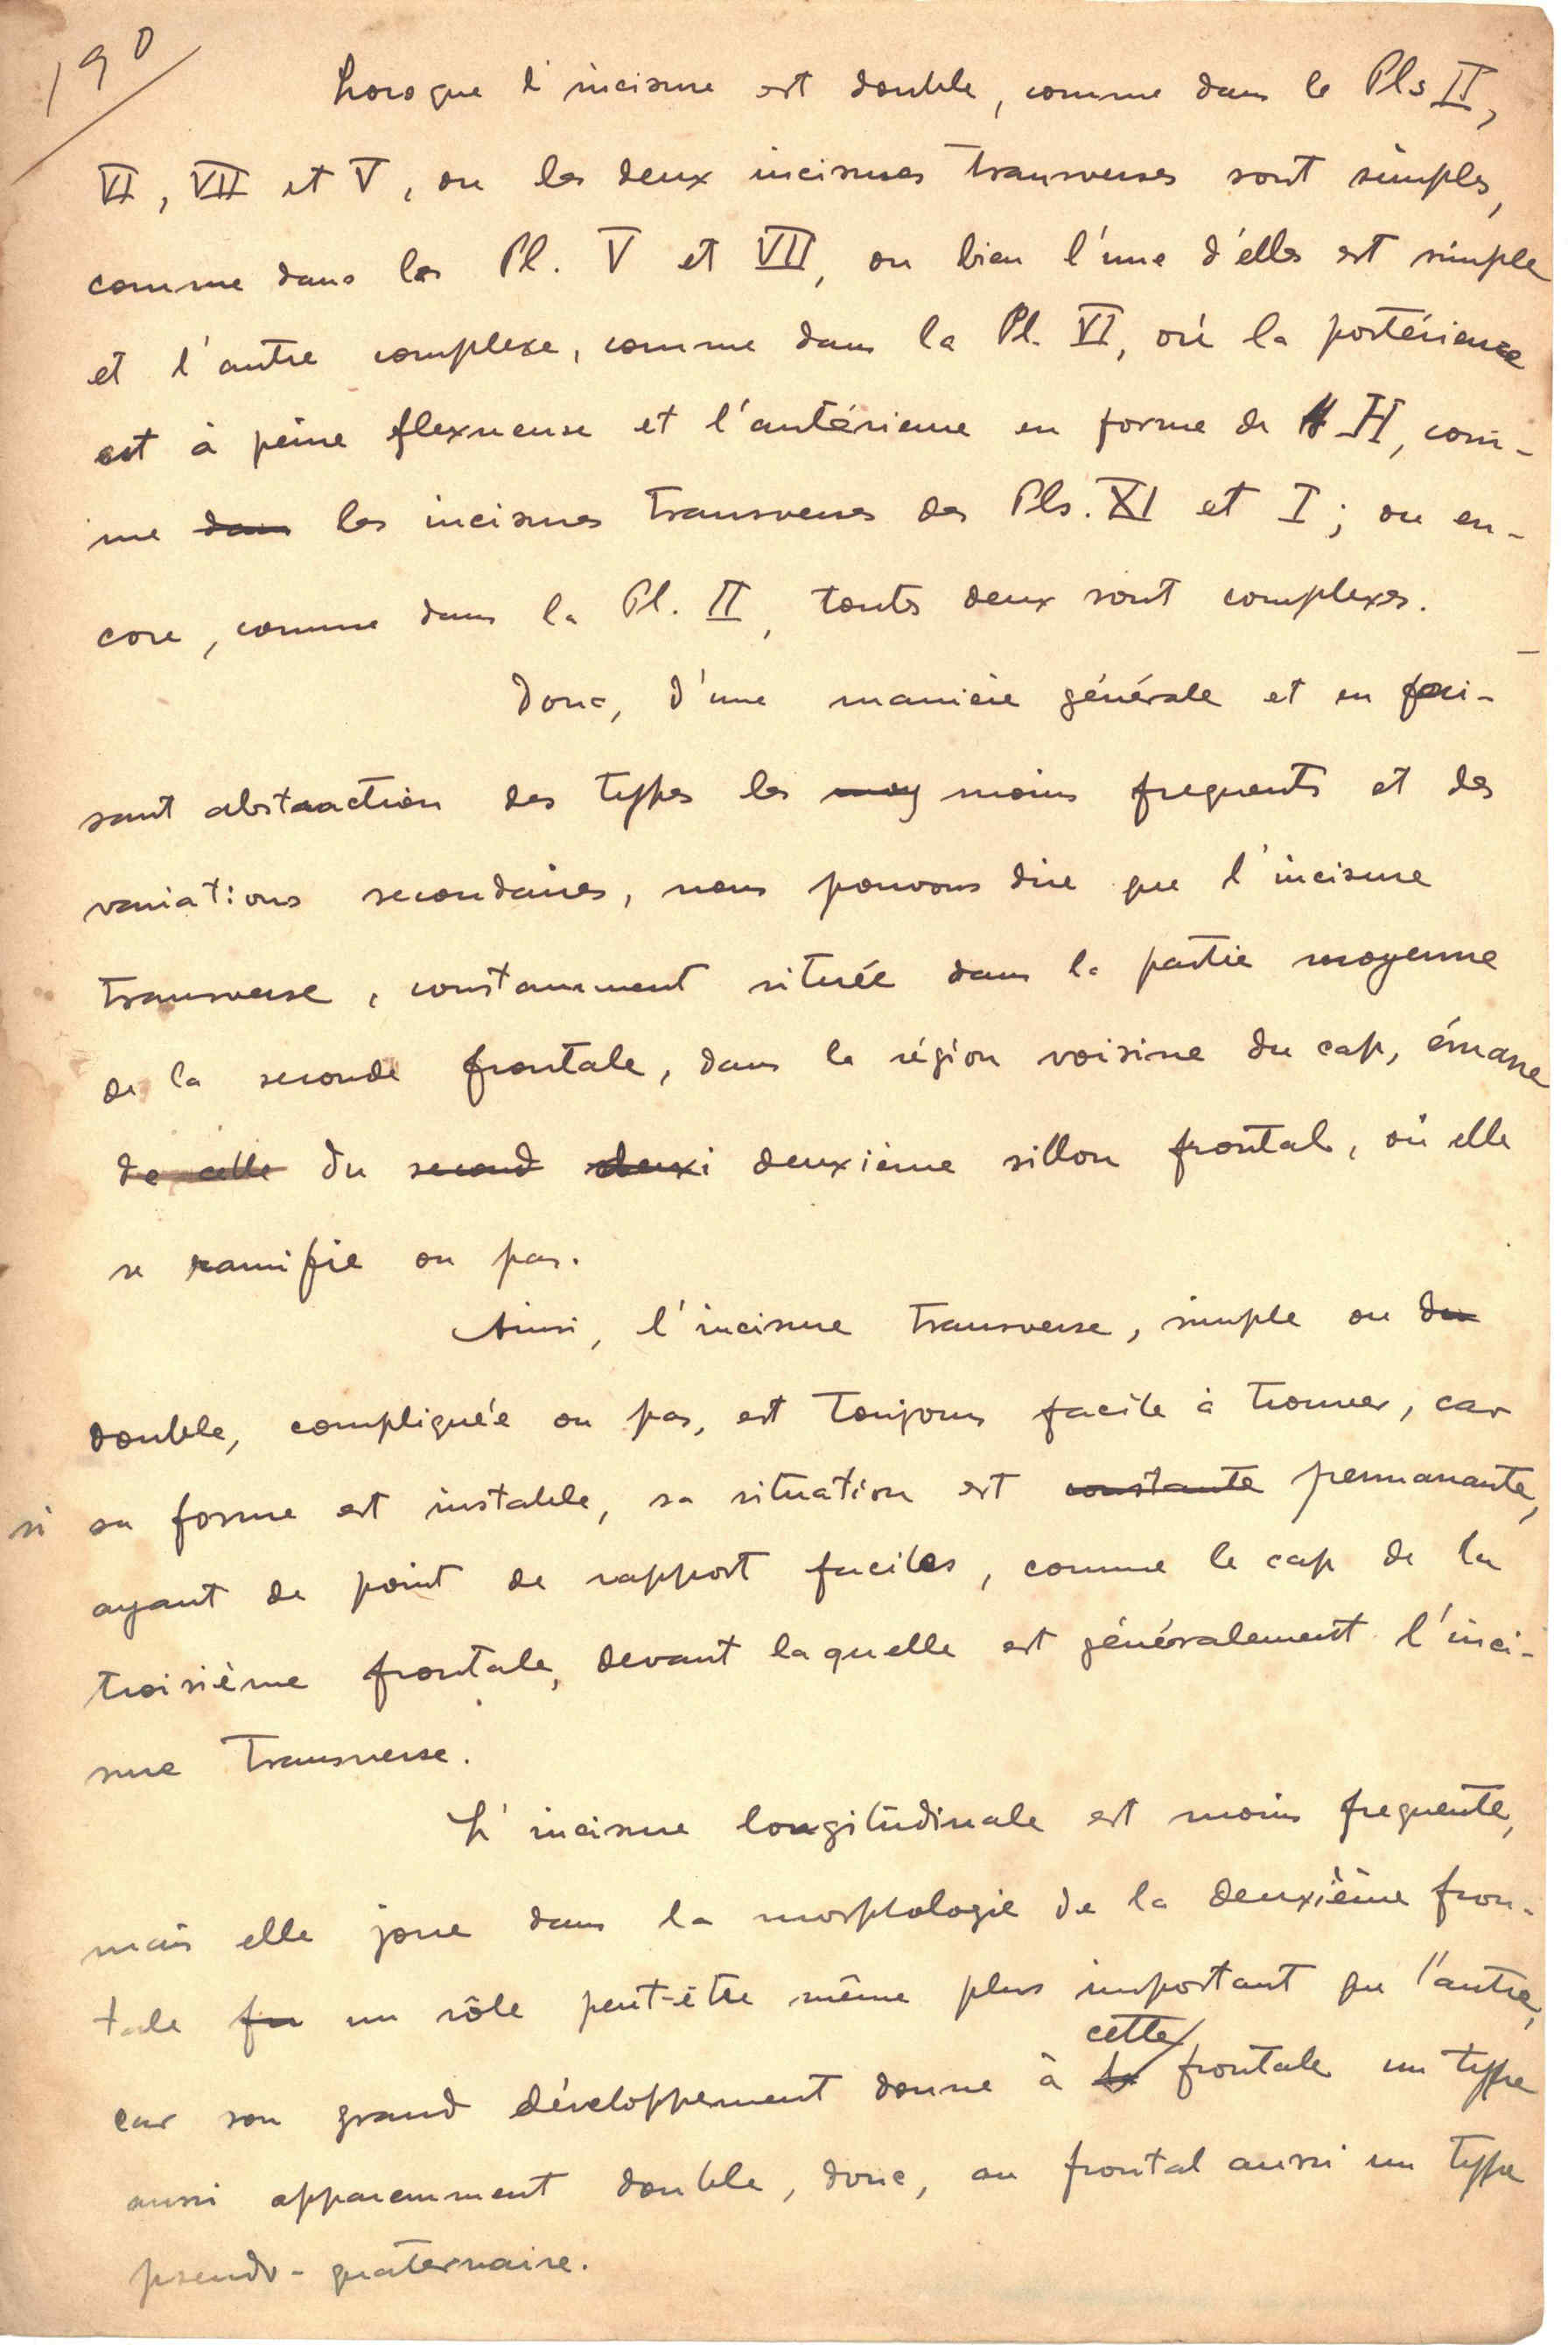 190
Lorsque l'incisure est double, comme dans le Pls II,
VI, VII et V, ou les deux incisures transverses sont simples,
comme dans les Pl. V et VII, ou bien l'une d'elles est simple
et l'autre complexe, comme dans la Pl. VI, où la postérieure
est à peine flexueuse et l'antérieure en forme de H H, com-
me dans les incisures transverses des Pls. XI et I; ou en-
core, comme dans la Pl. II, toutes deux sont complexes.
Donc, d'une manière générale et en fai-
sant abstraction des types les moy moins frequents et des
variations secondaires, nous pouvons dire que l'incisure
transverse, constamment située dans la partie moyenne
de la seconde frontale, dans la région voisine du cap, émane
de celle du second deuxi deuxième sillon frontal, où elle
se ramifie ou pas.
Ainsi, l'incisure transverse, simple ou du
double, compliquée ou pas, est toujours facile à trouver, car
si sa forme est instable, sa situation est constante permanante,
ayant de point de rapport faciles, comme le cap de la
troisième frontale, devant laquelle est généralement l'inci-
sure transverse.
L'incisure longitudinale est moins frequente,
mais elle joue dans la morphologie de la deuxième fron-
tale fu un rôle peut-être même plus important que l'autre,
cette
car son grand développement donne à la frontale un type
aussi apparemment double, donc, au frontal aussi un type
pseudo-quaternaire.